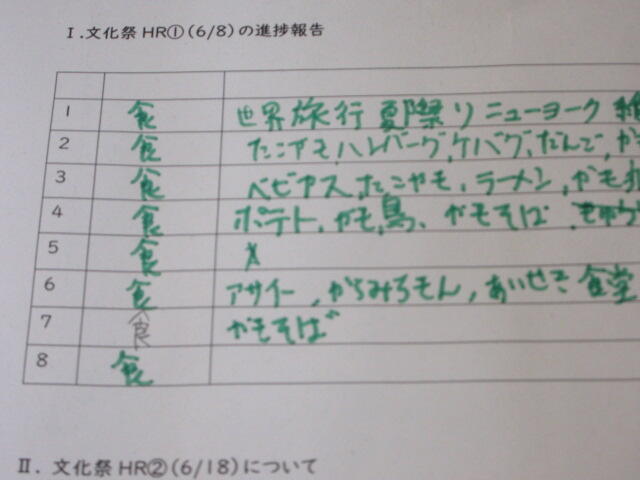 Ⅰ.文化祭 HR①(6/8)の進捗報告
1 食 世界旅行 夏祭り ニューヨーク
2 食 たこやき, ハンバーグ, ケバブ, だんご,
3 食 ベビカス, たこやき, ラーメン,
4 食 ポテト, やき鳥, やきそば
5 食 ×
6 食 アサイー, からみちきん, あいせき食堂
7 食 やきそば
8 食
Ⅱ. 文化祭 HR②(6/18)について